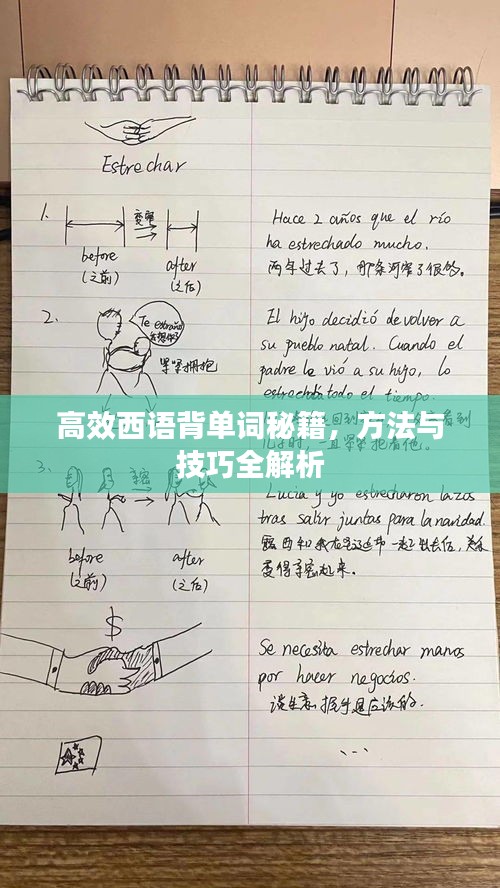 Estrechar
1.
变窄
before
(之前)
after
(之后)
Hace 2 años que el río
ha estrechado mucho.
两年过去了，那条河窄了很多。
2.
Te extraño
紧紧拥抱
El hijo decidió devolver a
su pueblo natal. Cuando el
padre le vió a su hijo, lo
estrechó todo el tiempo.
高效西语背单词秘籍，方法与
技巧全解析
3.
亲密
before
(之前)
after
(之后)
Lucía y yo estrecharon lazos
tras salir juntas para la navidad.
露西和我在圣诞节一起出去后，关系
变得亲密起来。
$
Se necesita estrechar manos
por hacer negocios.
谈生意，握手是应该的。